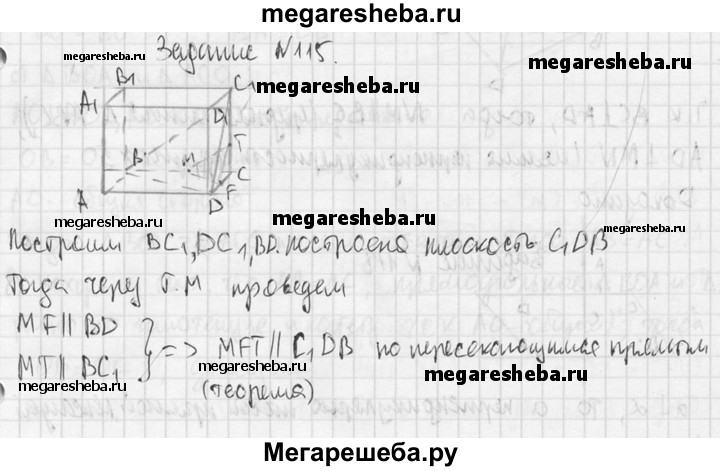 megaresheba.ru
Задание №115.
megaresheba.ru
megaresheba.ru
megaresheba.ru
B1
C1
A1
D1
T
B
M
C
F
A
D
megaresheba.ru
megaresheba.ru
megaresheba.ru
Построим BC1, DC1, BD. построена плоскость C1DB
Тогда через т. M проведем
MF || BD
MT || BC1
} => MFT || C1DB по пересекающимся прямым
(теорема)
megaresheba.ru
megaresheba.ru
megaresheba.ru
Мегарешеба.ру